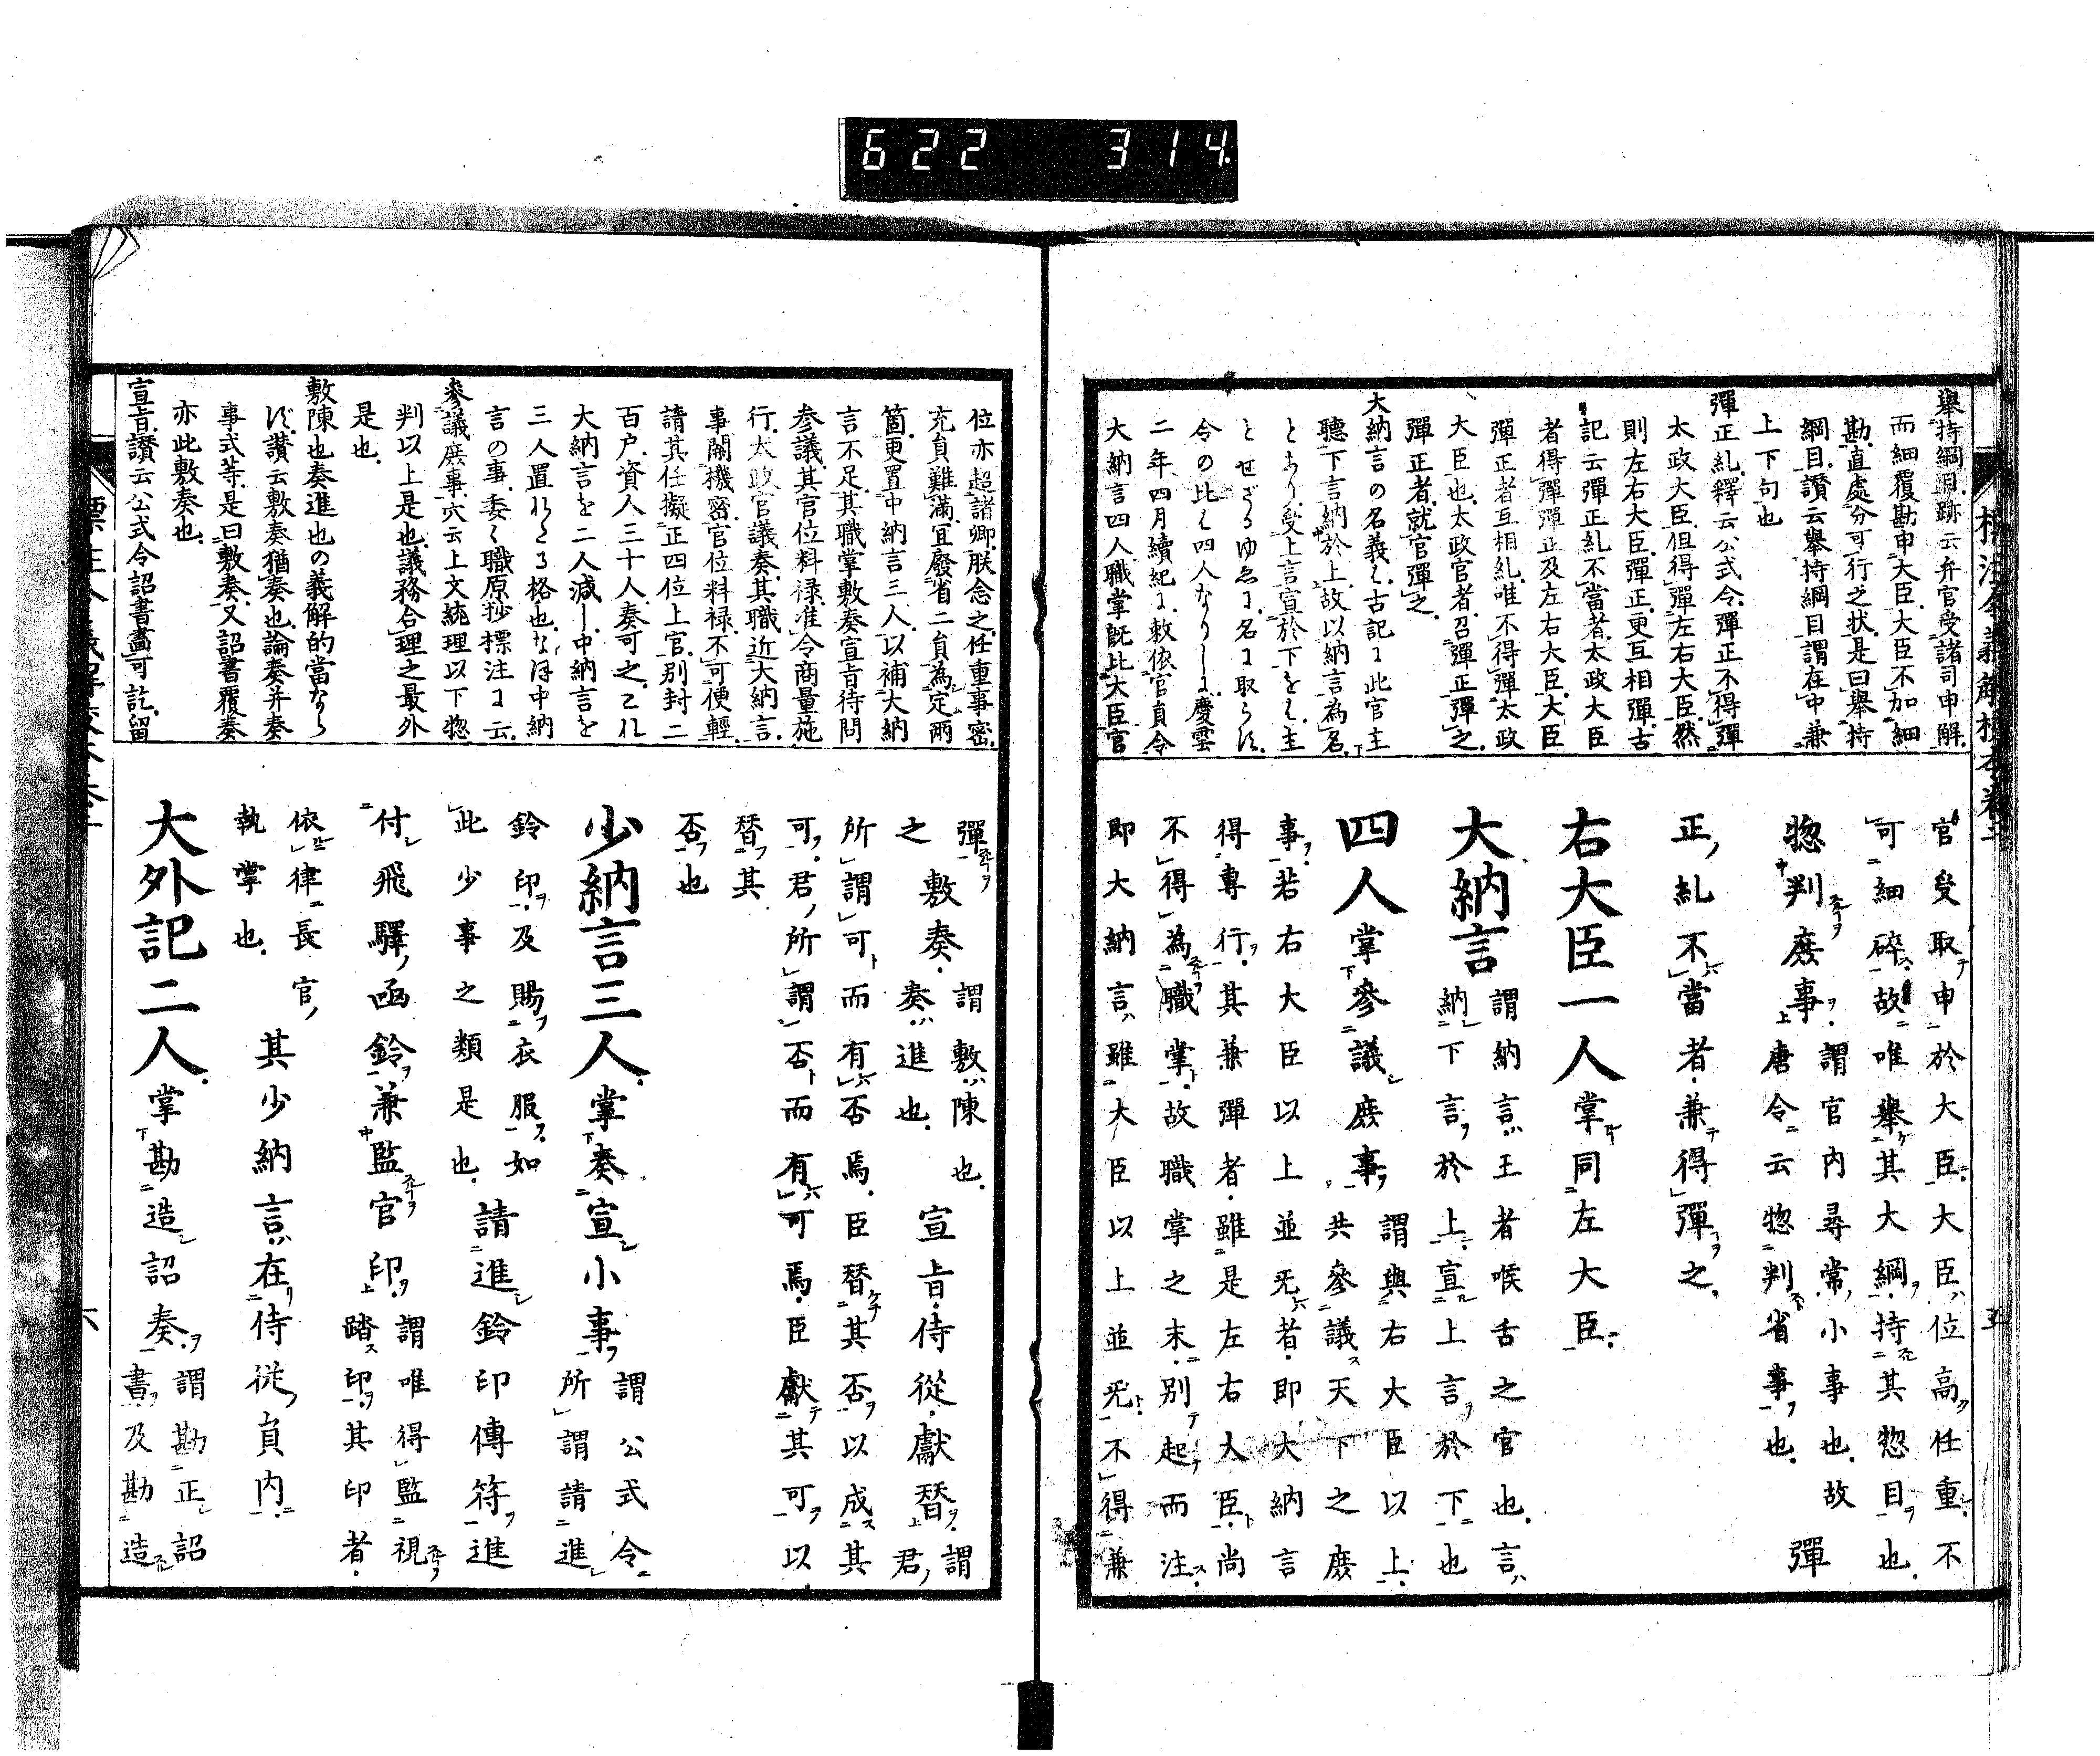 622 314
舉持綱目、跡云弁官受諸司申解、
而細覆勘申大臣、大臣不加細
勘、直處分可行之状、是曰舉持
綱目、讃云舉持綱目謂在中兼
上下句也
彈正糺、釋云公式令、彈正不得彈
太政大臣、但得彈左右大臣、然
則左右大臣、彈正、更互相彈、古
記云彈正糺不當者、太政大臣
者得彈彈正及左右大臣、大臣
彈正者互相糺、唯不得彈太政
大臣也、太政官者、召彈正彈之、
彈正者、就官彈之、
大納言の名義ハ、古記ニ此官主
聽下言納於上、故以納言為名、
とあり、受上言宣於下をハ、主
とせざるゆゑに、名に取らず、
令の比ハ四人なりしに、慶雲
二年四月續紀に、敕依官員令
大納言四人、職掌既比大臣、官
官受取テ申於大臣、大臣ハ位高ク任重シ、不
可細碎ス、故唯舉ケ其大綱ヲ、持其惣目ヲ也、
惣判庶事ヲ、謂官内尋常ノ小事也、故
唐令云惣判省事ヲ也、彈
正ノ糺不當者、兼テ得彈ヲ之、
右大臣一人掌同左大臣、
大納言謂納言ハ王者喉舌之官也、言ハ
納下言ヲ於上、宣上言ヲ於下也
四人掌參議庶事ヲ、謂與右大臣以上、
共參議ス天下之庶
事ヲ、若右大臣以上並旡者、即大納言
得專行ヲ、其兼彈者、雖是左右大臣ト、尚
不得為職掌ト、故職掌之末、別テ起ノ而注ス、
即大納言ハ、雖大臣以上並旡ト、不得兼
位亦超諸卿、朕念之、任重事密、
充員難滿、宜廢省二員為定兩
箇、更置中納言三人、以補大納
言不足、其職掌敷奏宣旨待問
参議、其官位料禄准令商量施
行、太政官議奏、其職近大納言、
事關機密、官位料禄、不可便輕、
請其任擬正四位上官、別封二
百戸、資人三十人、奏可之、これ
大納言を二人減し、中納言を
三人置れたる格也、なほ中納
言の事、委く職原抄標注に云、
參議庶事、穴云上文統理以下惣
判以上是也、議務合理之最外
是也、
敷陳也奏進也の義解的當なら
ず、讃云敷奏猶奏也、論奏并奏
事式等、是曰敷奏、又詔書覆奏
亦此敷奏也、
宣旨、讃云公式令詔書畫可訖、留
彈ヲ之敷奏、謂敷ハ陳也、
奏ハ進也、宣旨、侍從、獻替ヲ、謂
君ノ
所謂可ト而有否焉、臣替其否ヲ以成ス其
可ヲ、君ノ所謂否ト而有可焉、臣獻テ其可ヲ、以
替ヲ其
否ヲ也
少納言三人、掌奏宣小事ヲ、謂公式令
所謂請進
鈴印ヲ、及賜ヲ衣服ヲ、如
此少事之類是也、請進鈴印傳符ヲ、進
付飛驛ノ函鈴ヲ、兼監官印ヲ、謂唯得監視
踏ス印ヲ、其印者、
依律長官ノ
執掌也、其少納言ハ、在侍從ノ員内、
大外記二人、掌勘造詔奏ヲ、謂勘正詔
書ヲ、及勘造
五
六